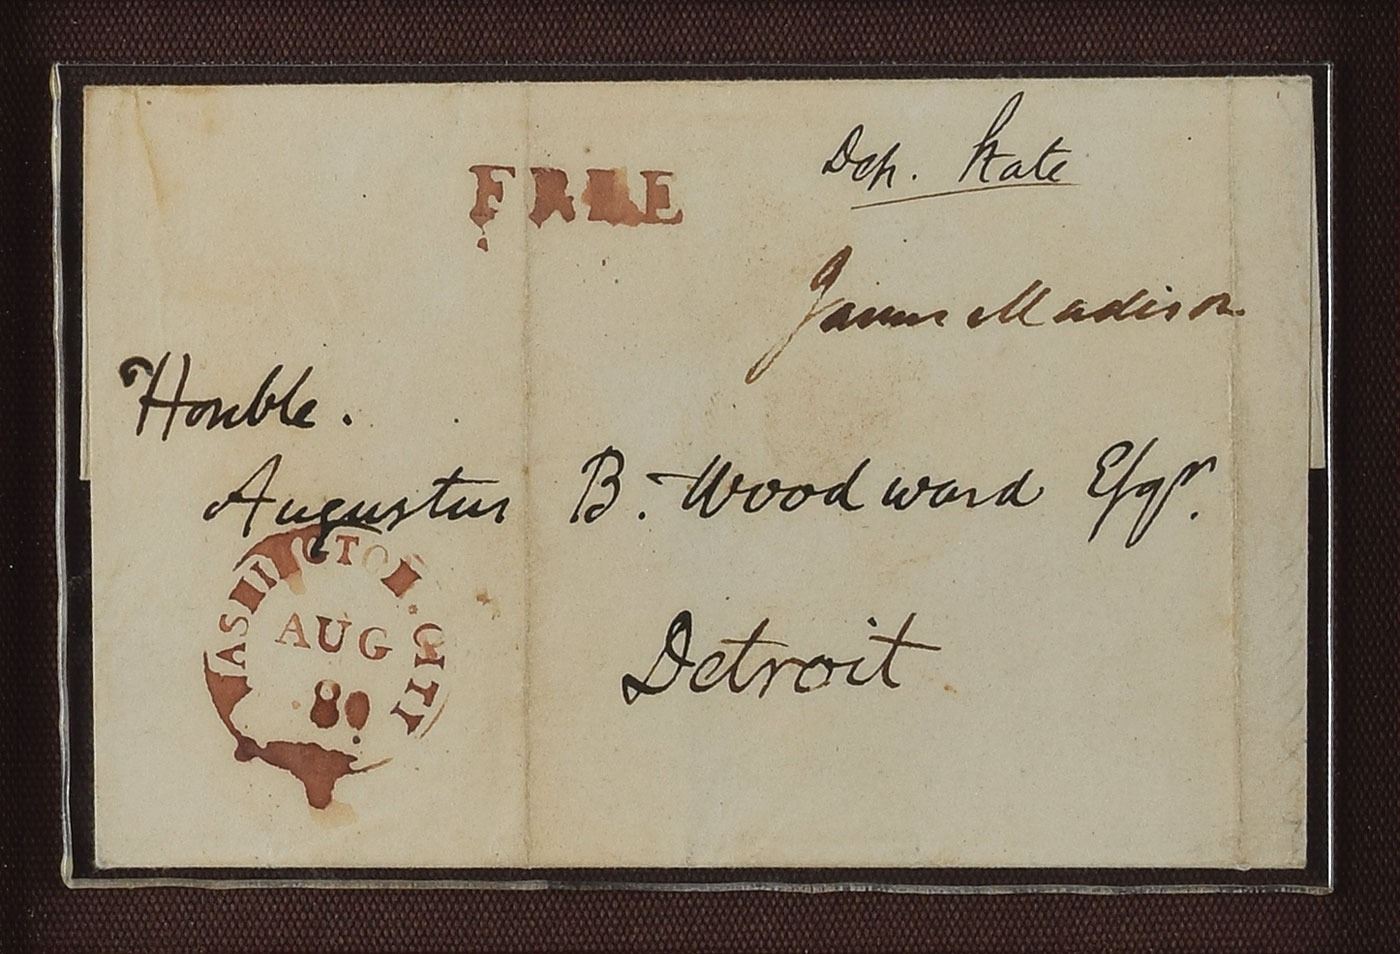 FREE
Dep. State
James Madison
Honble.
Augustus B. Woodward Esqr.
WASHINGTON. CITY
AUG
Detroit